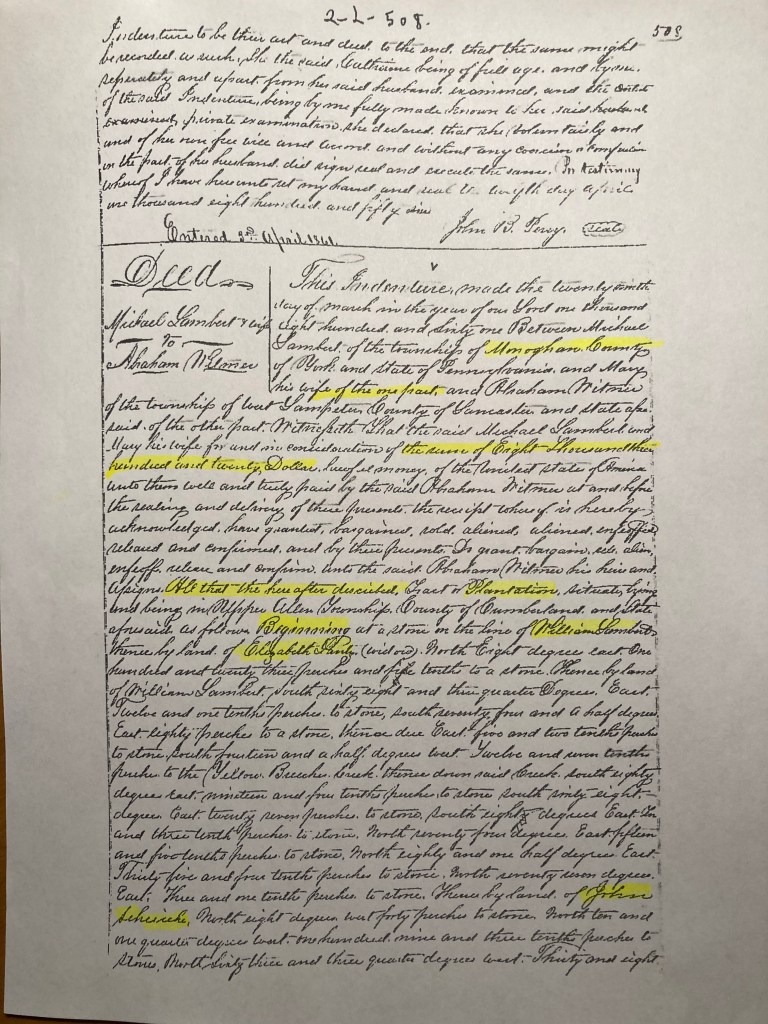 2-L-508.
508
Indenture to be their act and deed. to the end. that the same might
be recorded as such, She the said Catharine being of full age. and by me.
seperately and apart from her said husband. examined, and the contents
of the said Indenture, being by me fully made known to her. said husband
examined, private examination she declared, that she voluntarily and
and of her own free will and accord. and without any coercion or compulsion
on the part of her husband did sign seal and execute the same, In testimony
whereof I have hereunto set my hand and seal the day April
one thousand eight hundred. and fifty
John B. Perry. seal
Entered 3rd April 1861.
Deed
Michael Lambert & wife
To
Abraham Witmer
This Indenture, made the twenty
day of. march in the year of our Lord one thousand
eight hundred. and sixty one Between Michael
Lambert. of the township of Monoghan. County
of York. and state of Pennsylvania. and Mary
his wife of the one part, and Abraham Witmer
of the township of west Lampeter, County of Lancaster and state afore
said. of the other part. Witnesseth That the said Michael Lambert and
Mary his wife for and in consideration of the sum of Eight Thousand three
hundred and twenty Dollars. lawful money. of the United states of America
unto them well and truly paid by the said Abraham Witmer at and before
the sealing and delivery of these presents. the receipt whereof is hereby
acknowledged, have granted, bargained, sold, aliened, aliened, enfeoffed
released and confirmed. and by these Presents. Do grant, bargain, sell, alien,
enfeoff, release and confirm. Unto the said Abraham Witmer his heirs and
Assigns. All that the hereafter described. Tract or Plantation, situate, lying
and being in Upper Allen Township. County of Cumberland. and State
aforesaid as follows Beginning at a stone in the line of William Lambert
thence by land. of Elizabeth (widow). North Eight degrees east. One
hundred and twenty three perches and five tenths to a stone. Thence by land
of William Lambert, South sixty eight and three quarter Degrees. East.
Twelve and one tenths perches. to stone, south seventy four and a half degrees
East. eighty perches to a stone. thence due East. five and two tenths perches
to stone, south fourteen and a half. degrees west. Twelve and seven tenths
perches to the Yellow. Breeches. Creek. thence down said Creek. south eighty
degrees east. nineteen and four tenths perches to stone south sixty eight.
degrees. East. twenty seven perches to stone, south eighty degrees East. Ten
and three tenth perches to stone. North seventy four degrees. East. fifteen
and five tenths perches to stone, North eighty and one half degrees East.
Thirty five and four tenths perches to stone. North seventy seven degrees.
East. Three and one tenth perches to stone. Thence by land. of John
North eight degrees west forty perches to stone. North ten and
one quarter degrees west. one hundred. nine and three tenths perches to
stone, North Sixty three and three quarter degrees west. Thirty and eight